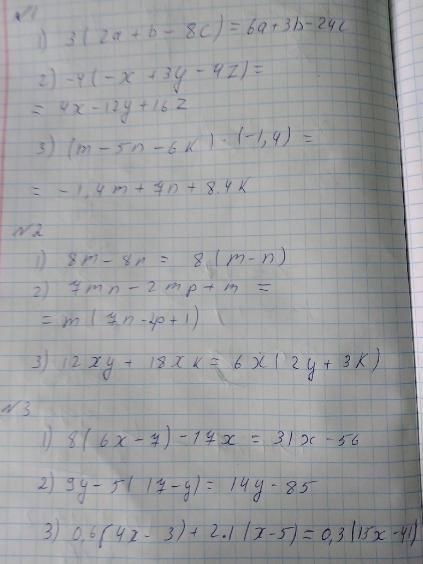 №1
1) 3(2a+b-8c)=6a+3b-24c
2) -4(-x+3y-4z)=
= 4x-12y+16z
3) (m-5n-6k)·(-1,4)=
= -1,4m+7n+8.4k
№2
1) 8m-8n = 8(m-n)
2) 7mn-2mp+m =
= m(7n-2p+1)
3) 12xy+18xk=6x(2y+3k)
№3
1) 8(6x-7)-17x = 31x-56
2) 9y-5(17-y)=14y-85
3) 0,6(4x-3)+2.1(x-5)=0,3(15x-41)